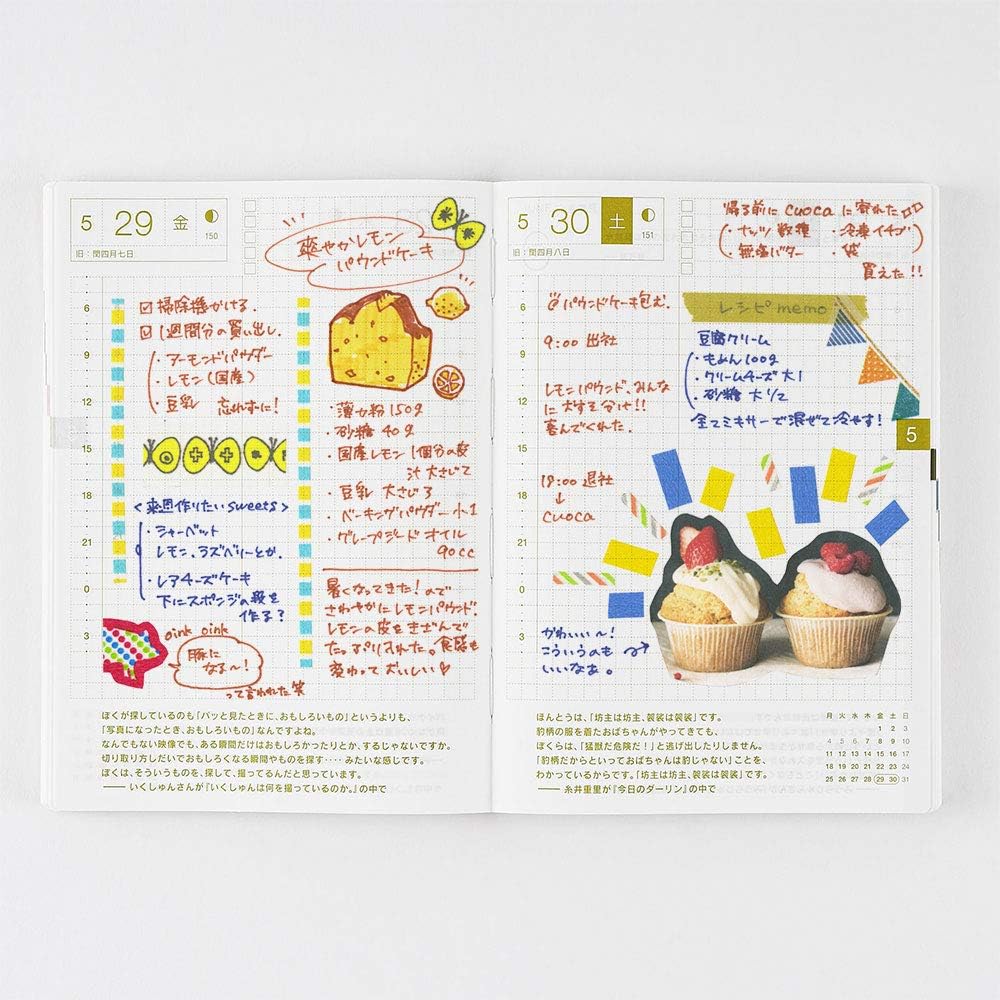 5 29 金
150
旧：閏四月七日
爽やかレモン
パウンドケーキ
6
9
12
15
18
21
0
3
☑掃除機かける。
☑1週間分の買い出し。
・アーモンドパウダー
・レモン（国産）
・豆乳 忘れずに！
＜来週作りたいsweets＞
・シャーベット
レモン、ラズベリーとか。
・レアチーズケーキ
下にスポンジの段を
作る？
oink oink
豚に
なる〜！
って言われた笑
・薄力粉 150g
・砂糖 40g
・国産レモン 1個分の皮
汁 大さじ2
・豆乳 大さじ3
・ベーキングパウダー 小1
・グレープシード オイル
90cc
暑くなってきた！ので
さわやかにレモンパウンド。
レモンの皮をきざんで
たっぷり入れた。食感も
変わっておいしい♡
ぼくが探しているのも「パッと見たときに、おもしろいもの」というよりも、
「写真になったとき、おもしろいもの」なんですよね。
なんでもない映像でも、ある瞬間だけはおもしろかったりとか、するじゃないですか。
切り取り方しだいでおもしろくなる瞬間やものを探す‥‥みたいな感じです。
ぼくは、そういうものを、探して、撮ってるんだと思っています。
——いくしゅんさんが『いくしゅんは何を撮っているのか。』の中で
5 30 土
151
旧：閏四月八日
帰る前に cuoca に寄れた♫
・ナッツ 数種 ・冷凍イチゴ
・無塩バター ・袋
買えた！！
6
9
12
15
18
21
0
3
@パウンドケーキ包む。
9:00 出社
レモンパウンド、みんな
に大すそ分け！！
喜んでくれた。
18:00 退社
↓
cuoca
レシピ memo
豆腐クリーム
・もめん 100g
・クリームチーズ 大1
・砂糖 大1/2
全てミキサーで混ぜて冷やす！
5
かわいい〜！
こういうのも
いいなぁ。
ほんとうは、「坊主は坊主、袈裟は袈裟」です。
豹柄の服を着たおばちゃんがやってきても、
ぼくらは、「猛獣だ危険だ！」と逃げ出したりしません。
「豹柄だからといっておばちゃんは豹じゃない」ことを、
わかっているからです。「坊主は坊主、袈裟は袈裟」です。
——糸井重里が『今日のダーリン』の中で
月 火 水 木 金 土 日
1 2 3
4 5 6 7 8 9 10
11 12 13 14 15 16 17
18 19 20 21 22 23 24
25 26 27 28 29 30 31